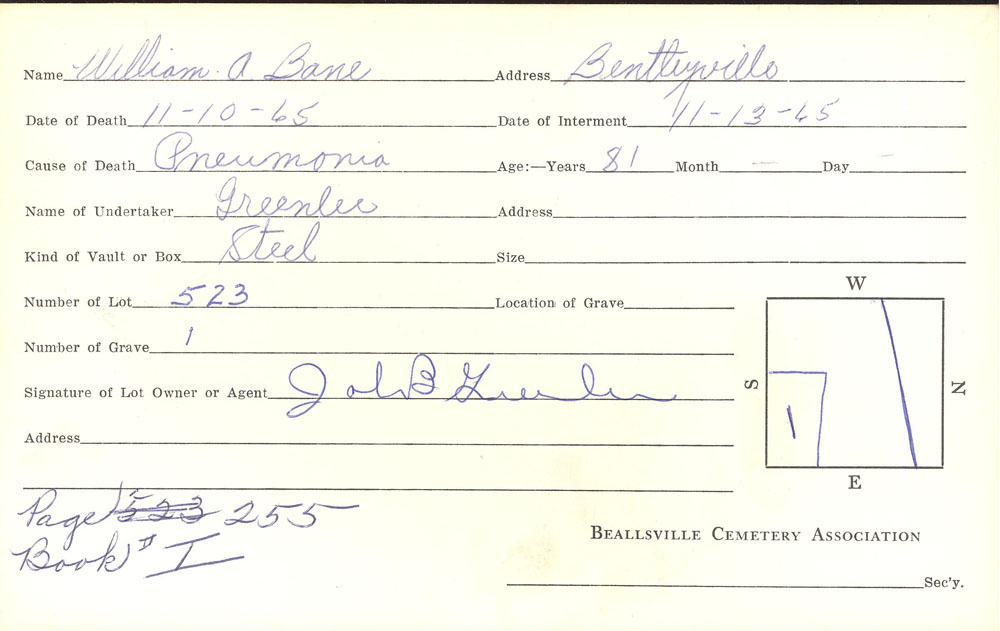 Name William A Bane Address Bentleyville
Date of Death 11-10-65 Date of Interment 11-13-65
Cause of Death Pneumonia Age:—Years 81 Month — Day –
Name of Undertaker Greenlee Address
Kind of Vault or Box Steel Size
Number of Lot 523 Location of Grave
W
Number of Grave 1
S N
1
Signature of Lot Owner or Agent B
Address
E
Page 523 255
Book # I
BEALLSVILLE CEMETERY ASSOCIATION
Sec'y.